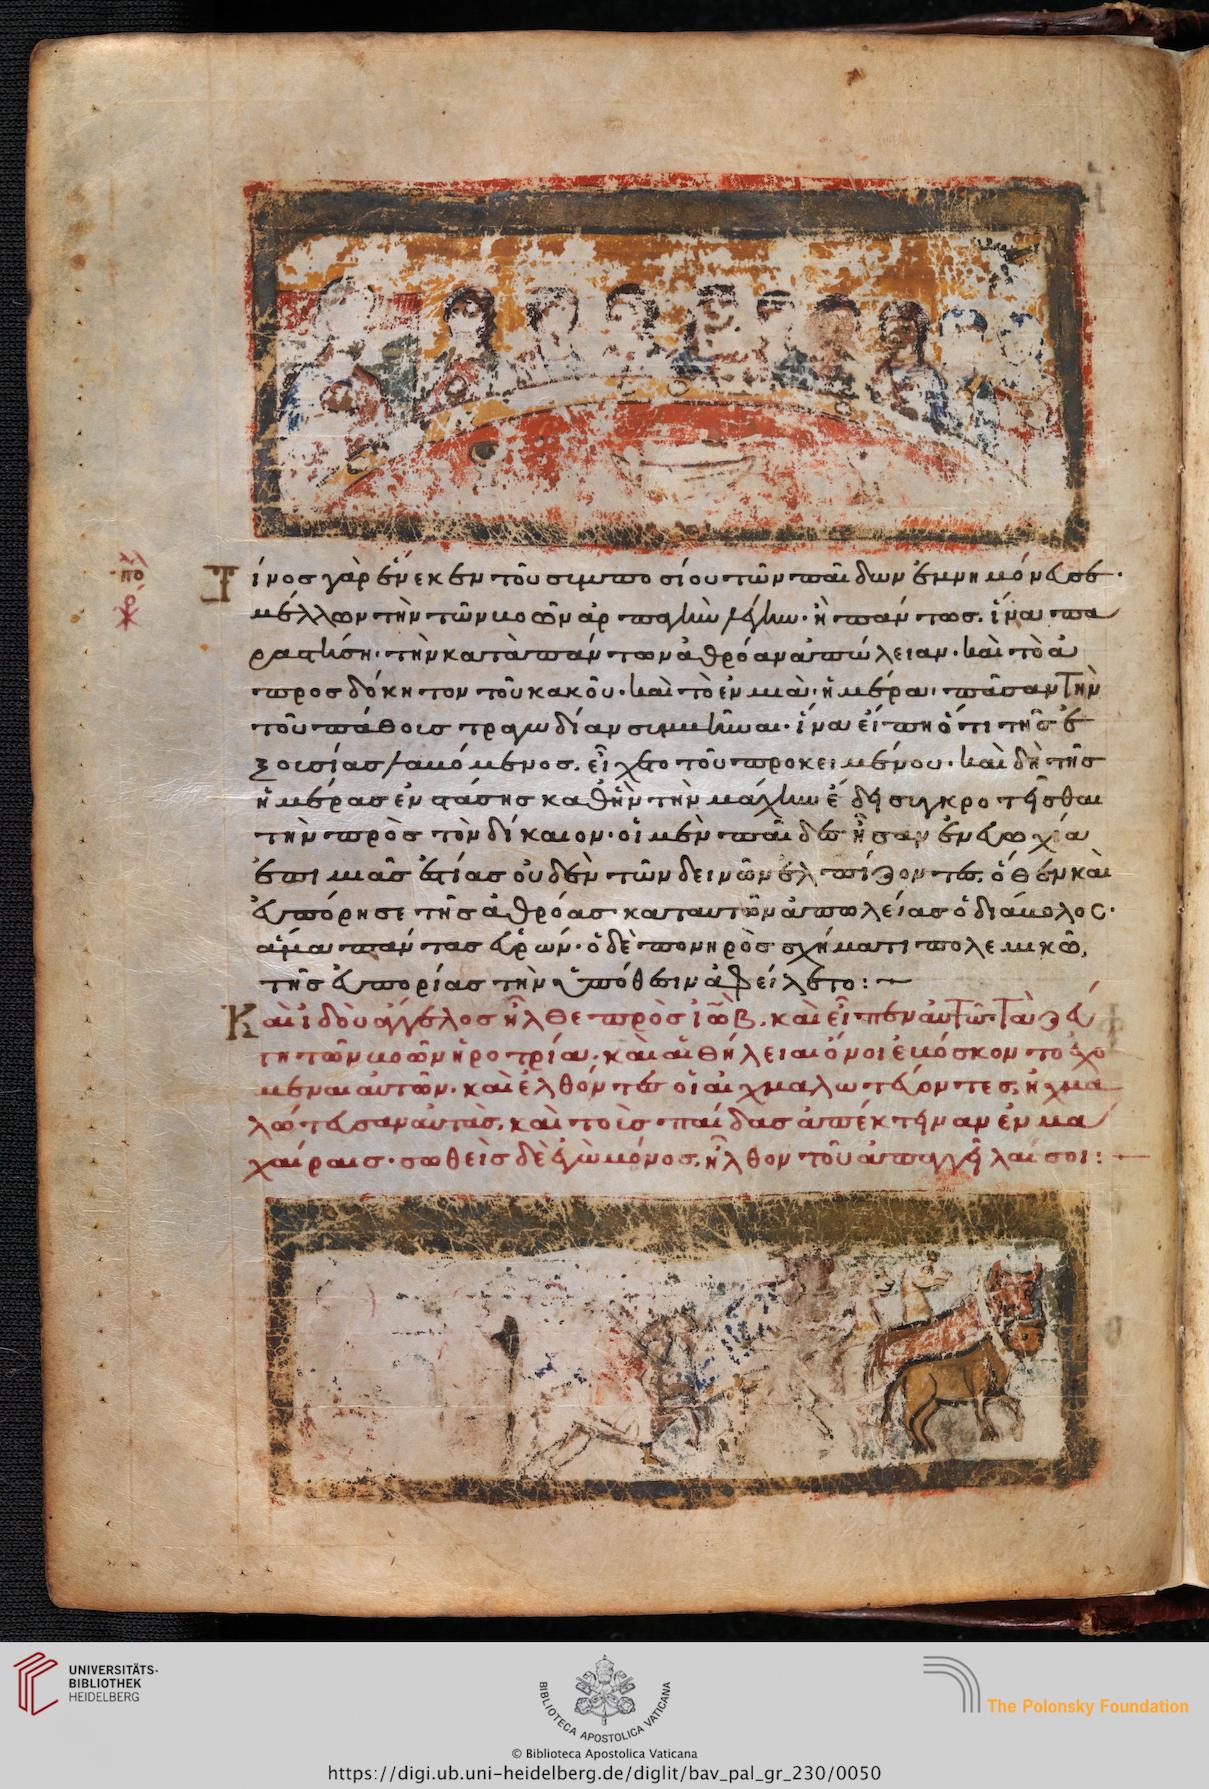 Τίνος γὰρ ἕνεκεν τοῦ συμποσίου τῶν παίδων ἐμνημόνευσε·
μέλλων τὴν τῶν βοῶν ἁρπαγὴν λέγειν· ἢ πάντως, ἵνα πα
ραστήση· τὴν κατὰ πάντων ἀθρόαν ἀπώλειαν· καὶ τὸ ἀ
προσδόκητον τοῦ κακοῦ· καὶ τὸ ἐν μιᾶ· ἡμέρα· πᾶσαν τὴν
τοῦ πάθους τραγωδίαν συμβῆναι· ἵνα εἴπη ὅτι τῆς ἐ
ξουσίας λαβόμενος, εἴχετο τοῦ προκειμένου· καὶ δὴ τῆς
ἡμέρας ἐνστάσης καθ' ἣν τὴν μάχην ἔδει συγκροτεῖσθαι
τὴν πρὸς τὸν δίκαιον· οἱ μὲν παῖδες ἦσαν ἐν εὐωχία
ἐπὶ μιᾶς ἑστίας οὐδὲν τῶν δεινῶν ἐλπίζοντες, ὅθεν καὶ
εὐπόρησε τῆς ἀθρόας κατ' αὐτῶν ἀπωλείας ὁ διάβολος·
ἅμα πάντας εὑρών· ὁ δὲ πονηρὸς σχήματι πολεμικῶ,
τῆς εὐπορίας τὴν ὑπόθεσιν ἀφείλετο:
Καὶ ἰδοὺ ἄγγελος ἦλθε πρὸς ἰὼβ, καὶ εἶπεν αὐτῶ· τὰ ζεύ
γη τῶν βοῶν ἠροτρία, καὶ αἱ θήλειαι ὄνοι ἐβόσκοντο ἐχό
μεναι αὐτῶν· καὶ ἐλθόντες οἱ αἰχμαλωτεύοντες, ἠχμα
λώτευσαν αὐτὰς, καὶ τοὺς παίδας ἀπέκτειναν ἐν μα
χαίραις· σωθεὶς δὲ ἐγὼ μόνος, ἦλθον τοῦ ἀπαγγεῖλαί σοι:
UNIVERSITÄTS-
BIBLIOTHEK
HEIDELBERG
BIBLIOTECA APOSTOLICA VATICANA
The Polonsky Foundation
© Biblioteca Apostolica Vaticana
https://digi.ub.uni-heidelberg.de/diglit/bav_pal_gr_230/0050